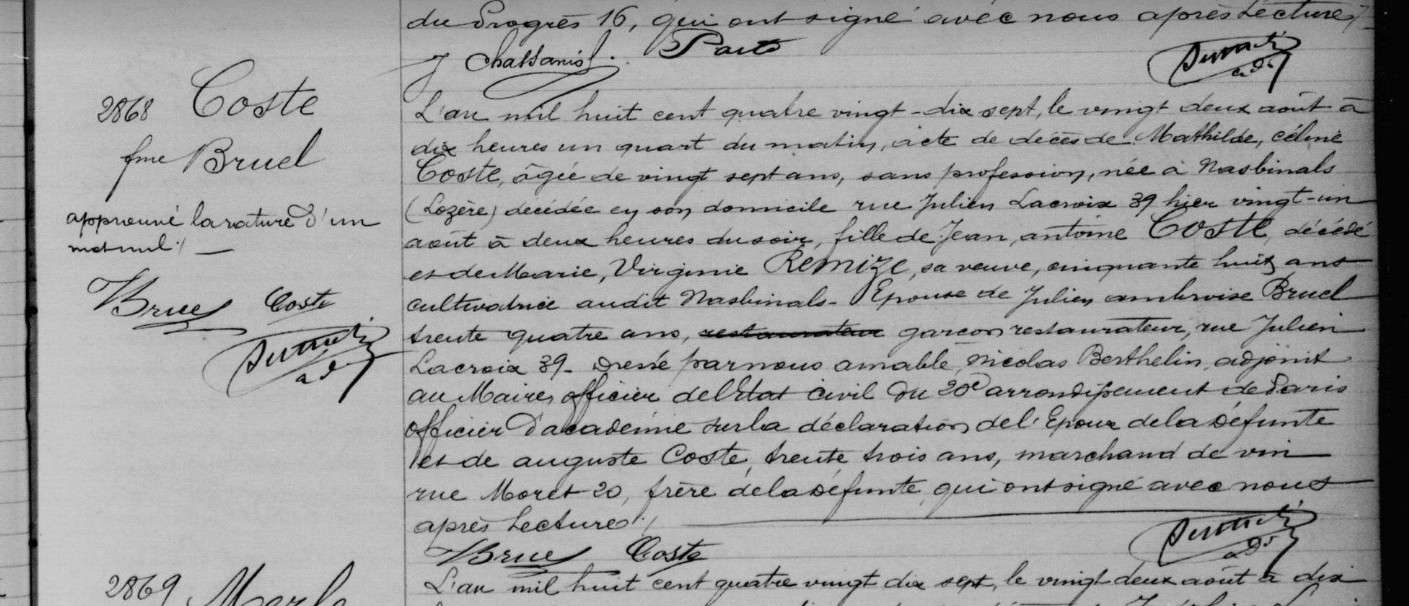 du Progrès 16, qui ont signé avec nous après Lecture ./.
J Chassanis. Parts
2868 Coste
fme Bruel
approuvé la rature d'un
mot nul ./. —
Bruel Coste
L'an mil huit cent quatre vingt-dix sept, le vingt deux août à
dix heures un quart du matin, acte de décès de Mathilde, céline
Coste, âgée de vingt sept ans, sans profession, née à Nasbinals
(Lozère) décédée en son domicile rue Julien Lacroix 39 hier vingt-un
août à deux heures du soir, fille de Jean, antoine Coste, décédé
et de Marie, Virginie Remize, sa veuve, cinquante huit ans
cultivatrice audit Nasbinals - Epouse de Julien ambroise Bruel
trente quatre ans, restaurateur garçon restaurateur, rue Julien
Lacroix 39 - Dressé par nous amable, Nicolas Berthelin, adjoint
au Maire, officier de l'Etat civil du 20e arrondissement de Paris
officier D'académie sur la déclaration de l'Epoux de la défunte
et de auguste Coste, trente trois ans, marchand de vin
rue Moret 20, frère de la défunte, qui ont signé avec nous
après Lecture ./.
Bruel Coste
2869 Merle
L'an mil huit cent quatre vingt dix sept, le vingt deux août à dix